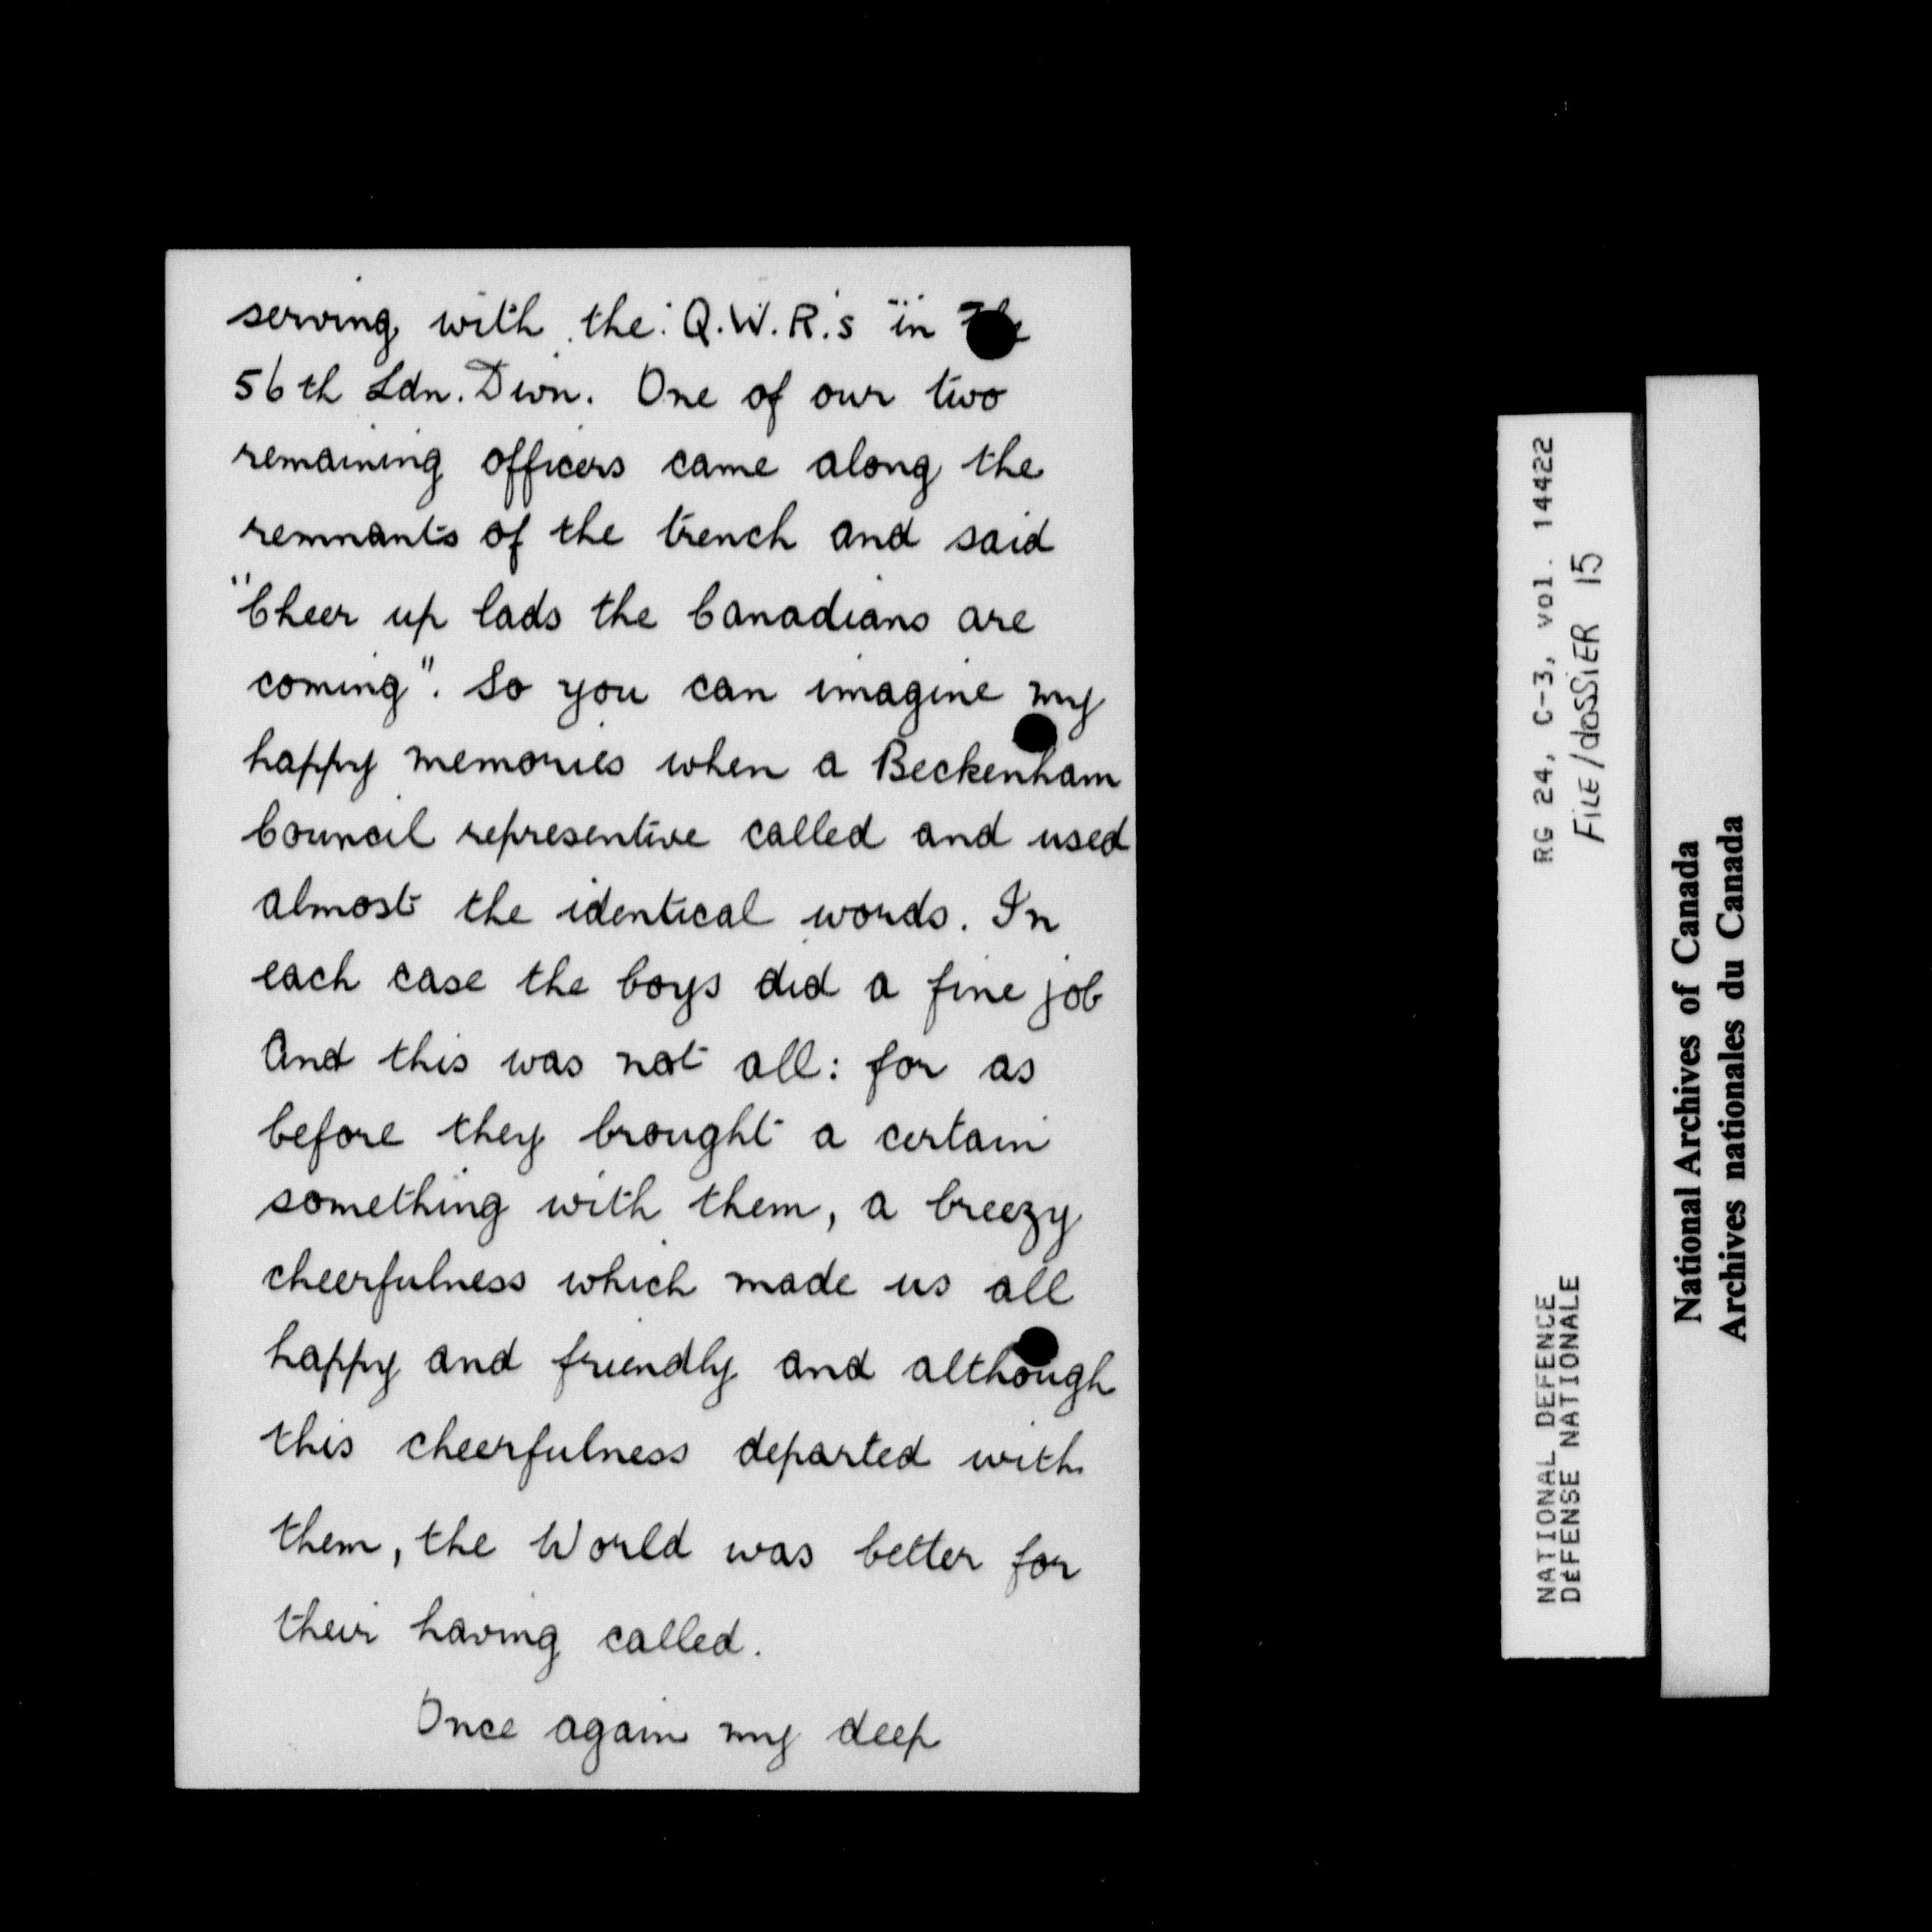 serving with the Q.W.R.s in the
56th Ldn. Divn. One of our two
remaining officers came along the
remnants of the trench and said
"Cheer up lads the Canadians are
coming". So you can imagine my
happy memories when a Beckenham
Council representive called and used
almost the identical words. In
each case the boys did a fine job
And this was not all: for as
before they brought a certain
something with them, a breezy
cheerfulness which made us all
happy and friendly and although
this cheerfulness departed with
them, the World was better for
their having called.
Once again my deep
RG 24, C-3, vol. 14422
FILE/dOSSiER 15
NATIONAL DEFENCE
DÉFENSE NATIONALE
National Archives of Canada
Archives nationales du Canada